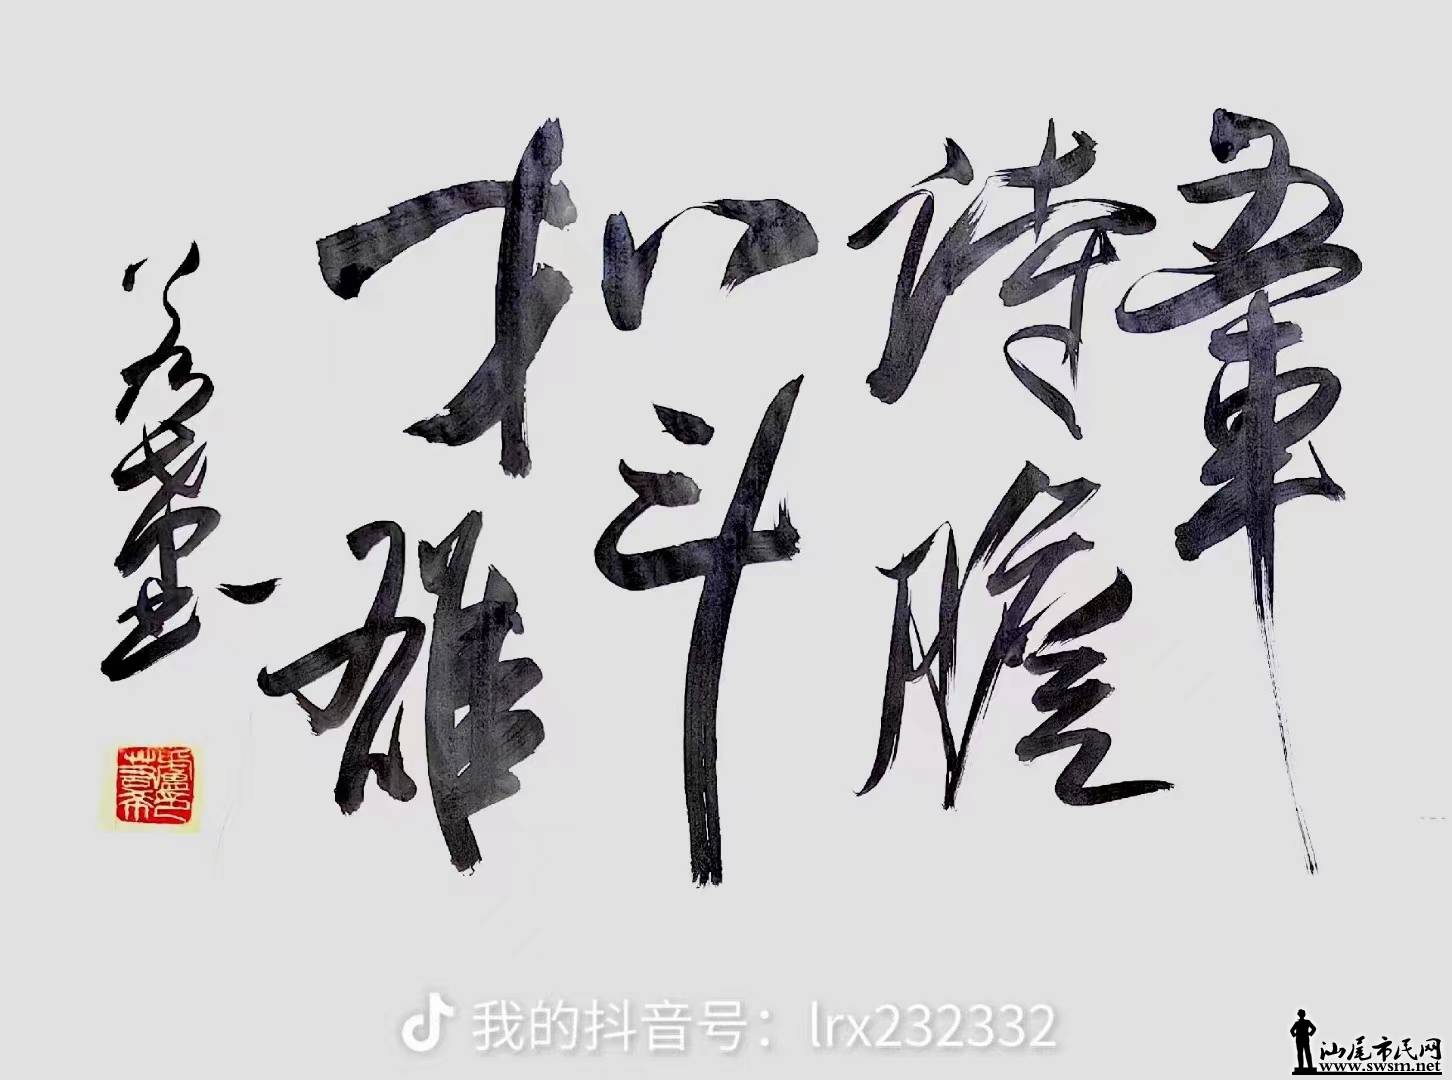 五車
詩膽
八斗
才雄
我的抖音号：lrx232332
汕尾市民网
www.swsm.net